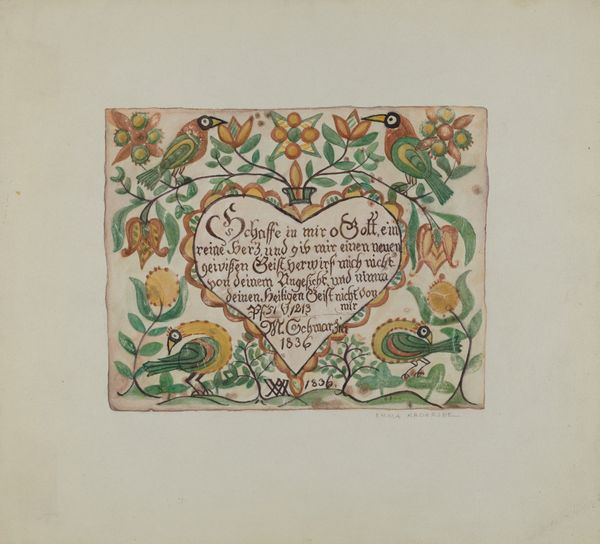 Schaffe in mir o Gott, ein
reine Herz, und gib mir einen neuen
gewißen Geist, verwirf mich nicht
von deinem Angesicht, und nimm
deinen Heiligen Geist nicht von
mir
Ps 51 V 12 13
M. Schwar
1836
1836
EMMA